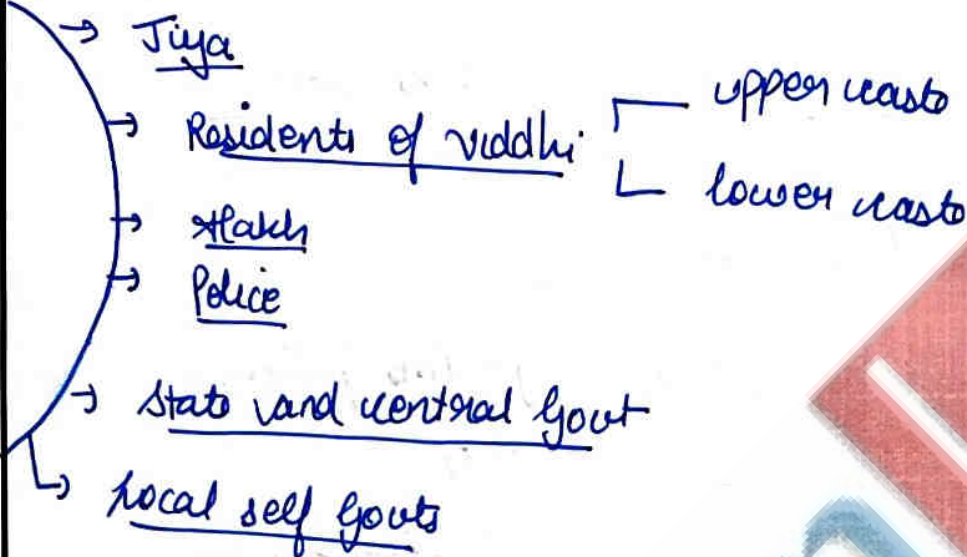 Jiya
Residents of viddhi
upper caste
lower caste
Police
State and central Govt
Local self Govts